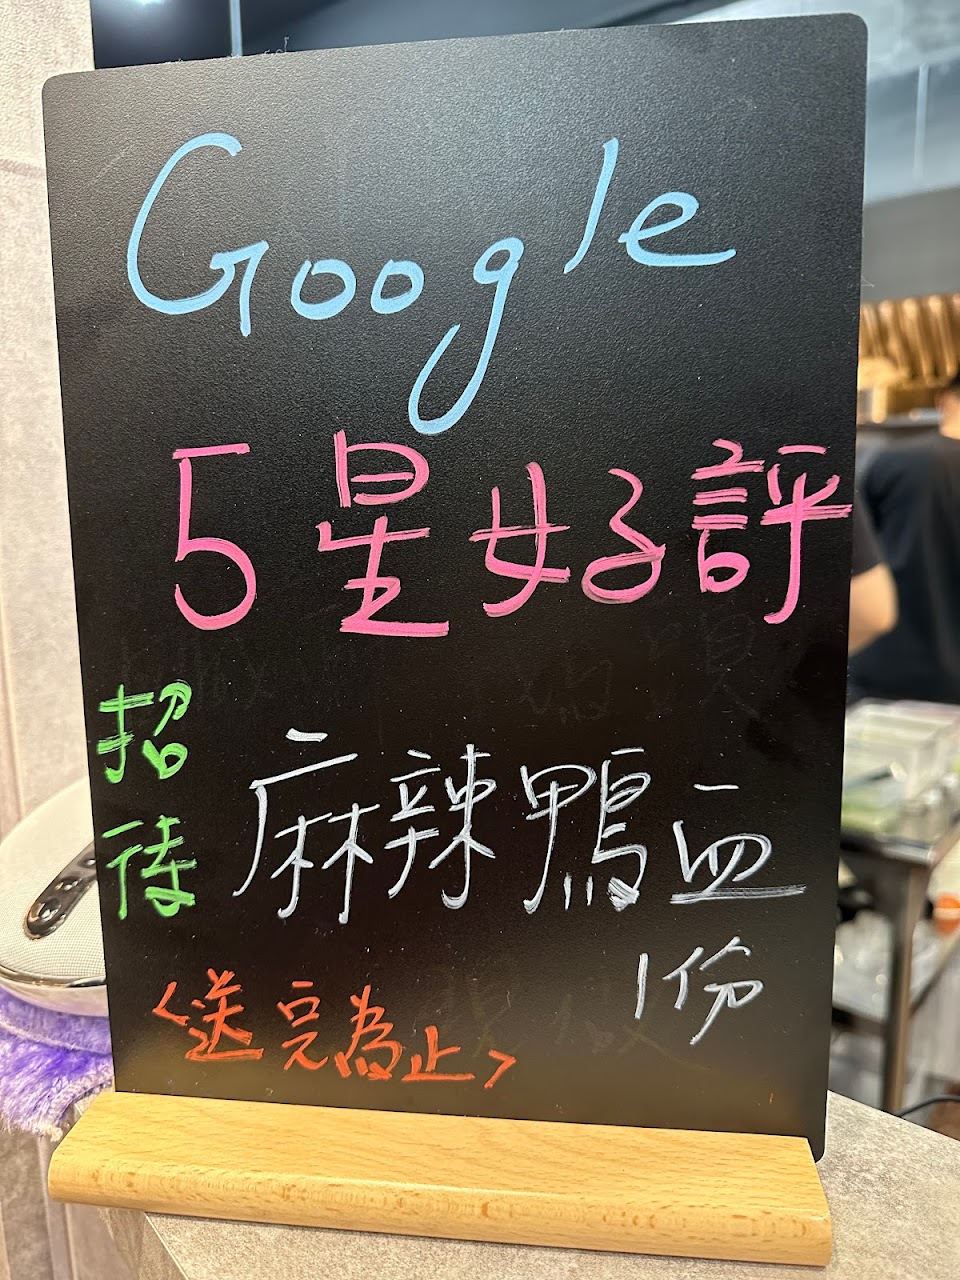 Google
5星好評
招待
麻辣鴨血
1份
<送完為止>